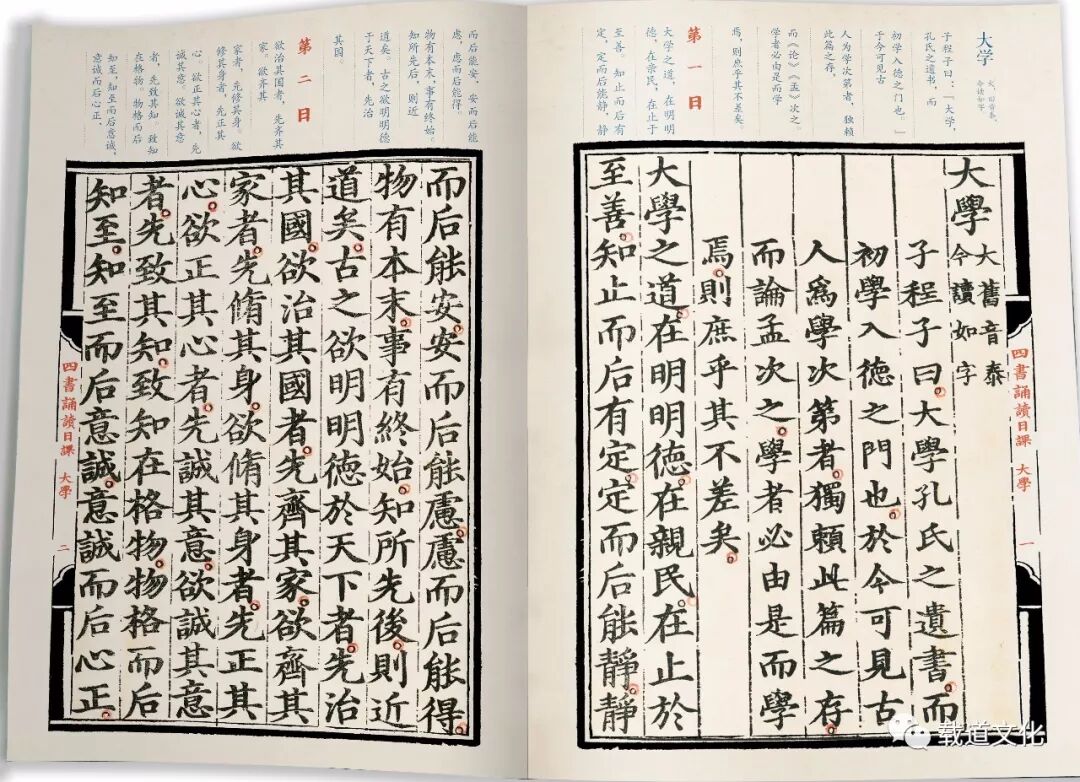 大学
大，旧音泰，
今读如字。
子程子曰：「大学，
孔氏之遗书，而
初学入德之门也。」
于今可见古
人为学次第者，独赖
此篇之存，
而《论》《孟》次之。
学者必由是而学
焉，则庶乎其不差矣。
第一日
大学之道，在明明
德，在亲民，在止于
至善。知止而后有
定，定而后能静，静
四書誦讀日課 大學 一
大學
大舊音泰
今讀如字
子程子曰。大學孔氏之遺書。而
初學入德之門也。於今可見古
人爲學次第者。獨賴此篇之存。
而論孟次之。學者必由是而學
焉。則庶乎其不差矣。
大學之道。在明明德。在親民。在止於
至善。知止而后有定。定而后能靜。靜
而后能安，安而后能
虑，虑而后能得。
物有本末，事有终始。
知所先后，则近
道矣。古之欲明明德
于天下者，先治
其国。
第二日
欲治其国者，先齐其
家。欲齐其
家者，先修其身。欲
修其身者，先正其
心。欲正其心者，先
诚其意。欲诚其意
者，先致其知。致知
在格物。物格而后
知至，知至而后意诚，
意诚而后心正。
而后能安。安而后能慮。慮而后能得。
物有本末。事有終始。知所先後。則近
道矣。古之欲明明德於天下者。先治
其國。欲治其國者。先齊其家。欲齊其
家者。先脩其身。欲脩其身者。先正其
心。欲正其心者。先誠其意。欲誠其意
者。先致其知。致知在格物。物格而后
知至。知至而后意誠。意誠而后心正。
四書誦讀日課 大學 二
载道文化